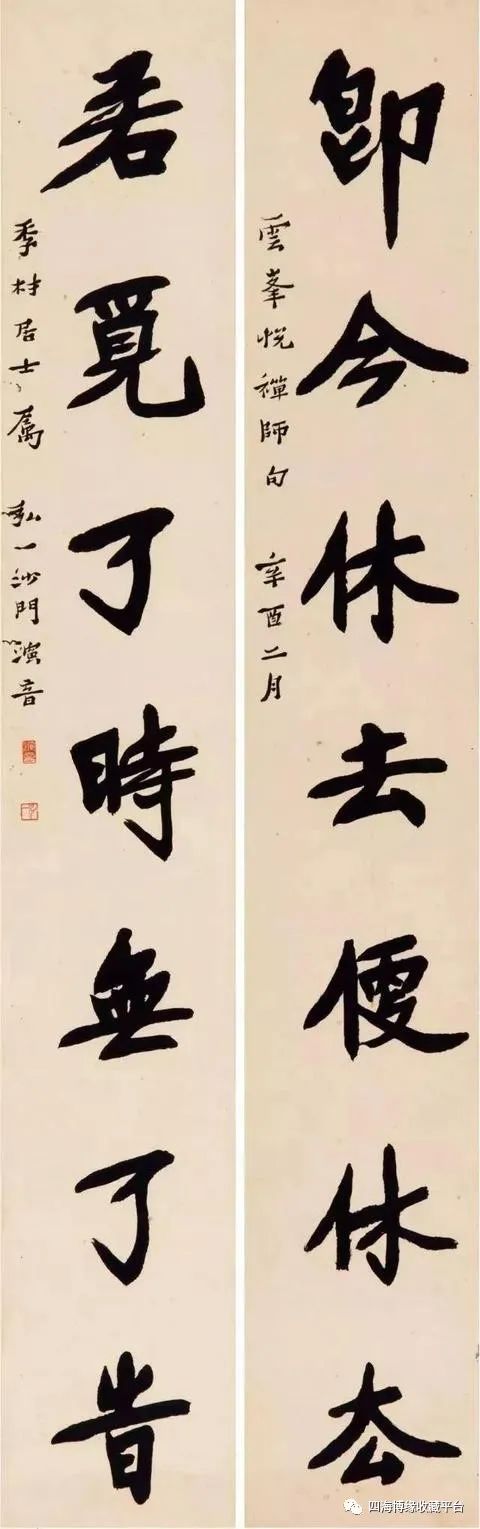 即今休去便休厺
雲峯悅禪師句 辛酉二月
若覓了時無了旹
季材居士屬 弘一沙門演音
四海博缘收藏平台